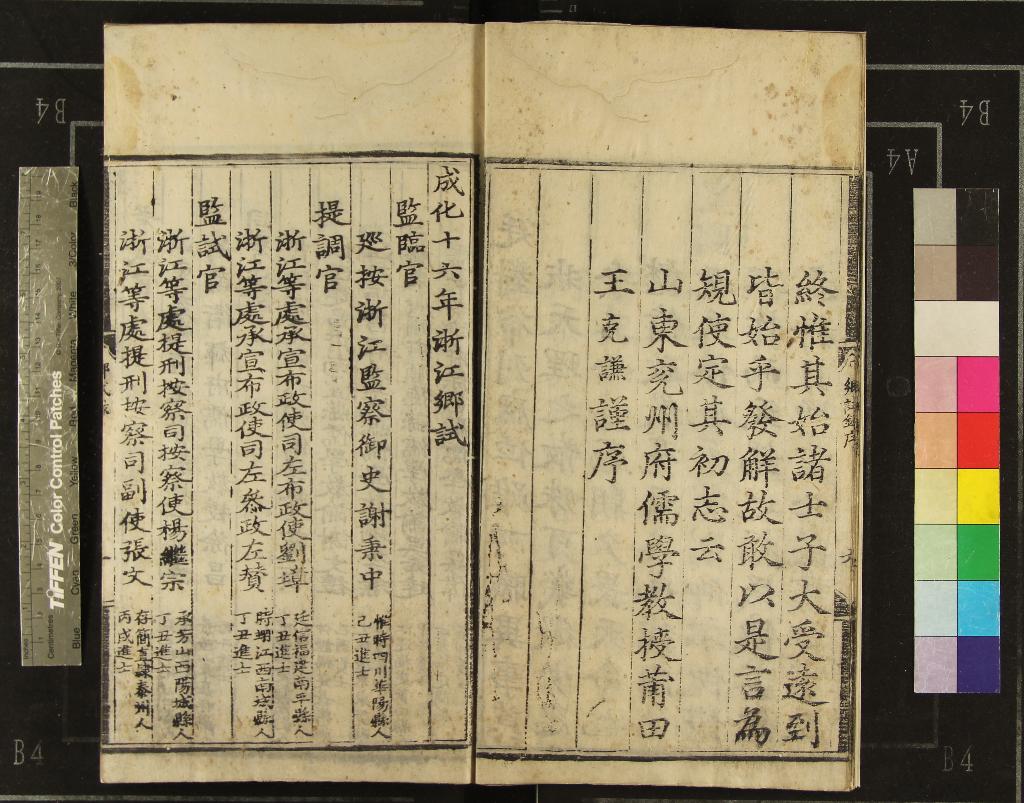 終惟其始諸士子大受遠到
皆始乎發解故敢以是言為
規使定其初志云
山東兖州府儒學教授莆田
王克謙謹序
鄉試錄序
成化十六年浙江鄉試
監臨官
廵按浙江監察御史謝秉中
惟時四川華陽縣人
己丑進士
提調官
浙江等處承宣布政使司左布政使劉璋
廷信福建南平縣人
丁丑進士
浙江等處承宣布政使司左叅政左贊
時翊江西南城縣人
丁丑進士
監試官
浙江等處提刑按察司按察使楊繼宗
承芳山西陽城縣人
丁丑進士
浙江等處提刑按察司副使張文
存簡直隸泰州人
丙戌進士
B4
B4
A4
B4
B4
TIFFEN Color Control Patches
Centimetres
Blue
Cyan
Green
Yellow
Red
Magenta
White
3/Color
Black